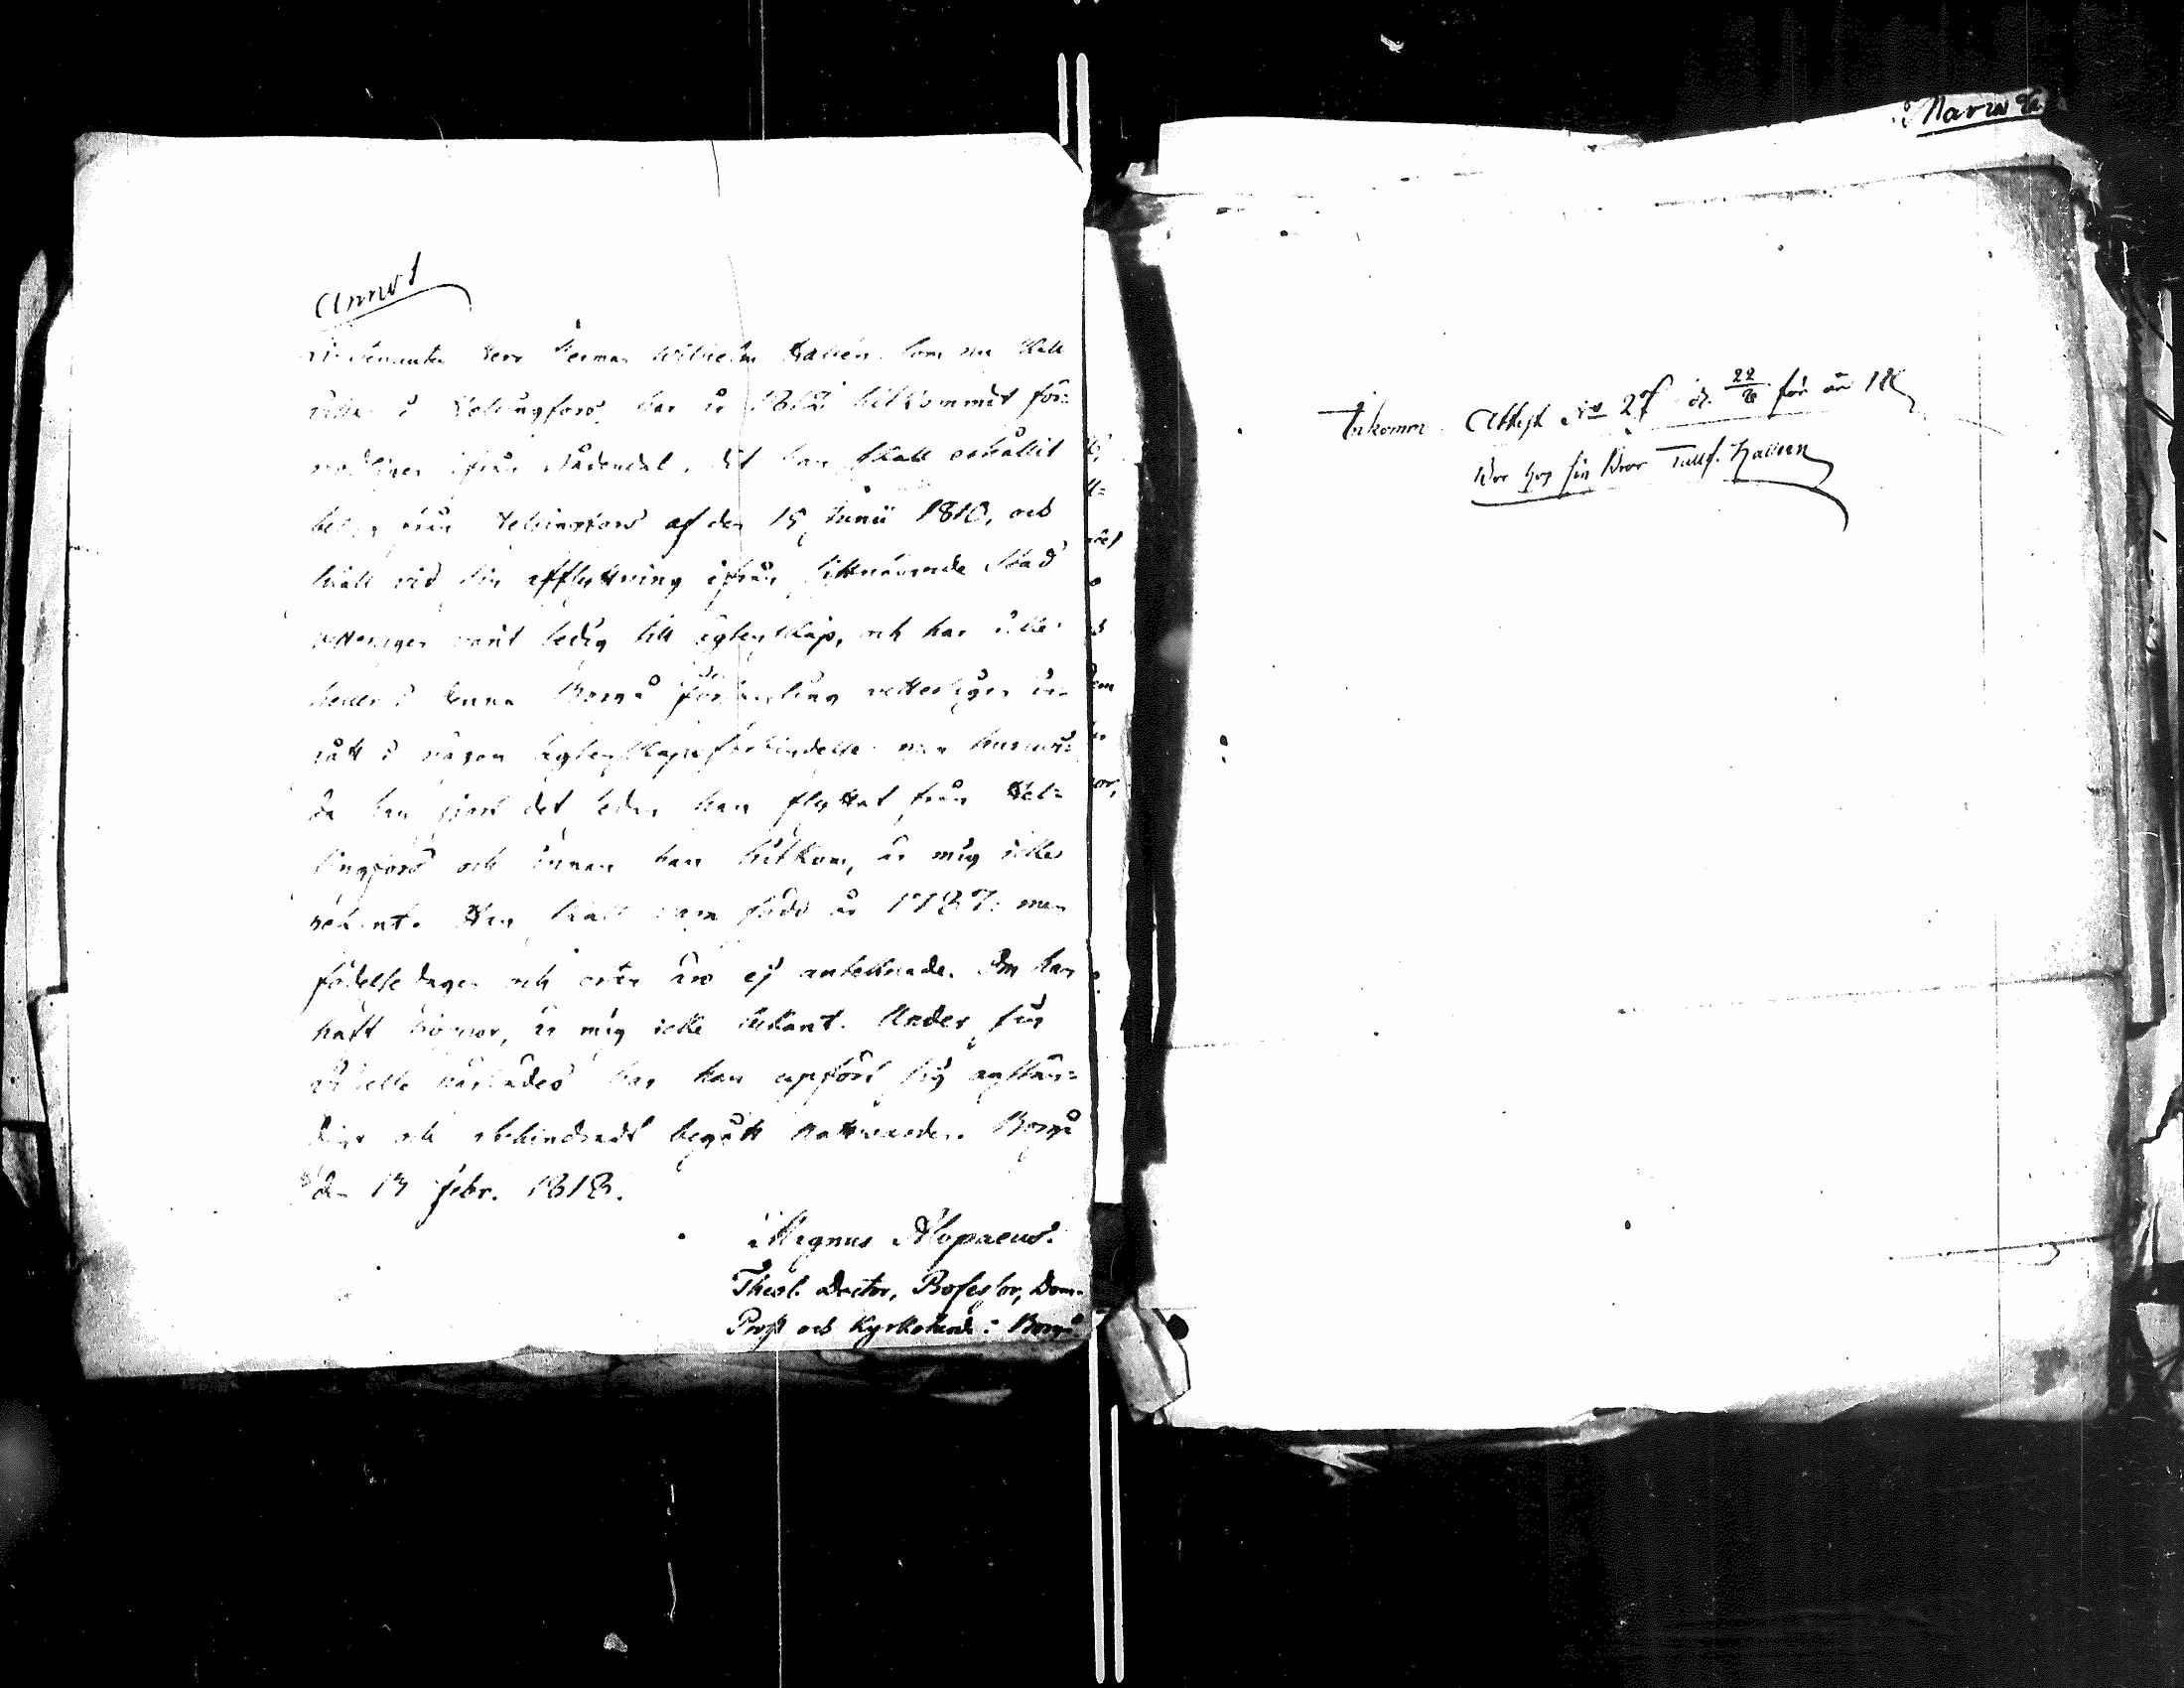 Annot
Herr Herman Wilhelm Hallén som nu skall
i Helsingfors, har år 1812 hitkommit för-
ifrån Nådendal, dit han skall erhållit
från Helsingfors af den 15 Junii 1810, och
skall vid sin afflyttning ifrån sistnämnde Stad
varit ledig till ägtenskap, och har icke
heller i denna Borgå församling vetterligen in-
gått i någon ägtenskapsförbindelse: men huruvi-
da han gjort det sedan han flyttat från Hel-
singfors och innan han hitkom, är mig icke
bekant. Han skall vara född år 1787: men
födelse dagen och orten äro ej anteknade. Om han
haft koppor, är mig icke bekant. Under sin
vistelse härstädes har han upfört sig anstän-
digt och obehindradt begått Nattvarden. Borgå
den 13 Febr. 1818.
Magnus Alopaeus.
Theol. Doctor, Professor, Dom-
Prost och Kyrkoherde i Borgå
Maria
Inkomm. Attest No 27 d. 22/8 för år 18
Bor hos sin Bror Hallen